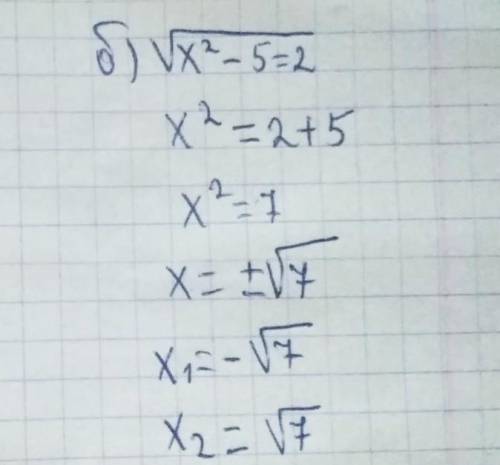 б) √x² - 5 = 2
x² = 2 + 5
x² = 7
x = ±√7
x₁ = -√7
x₂ = √7